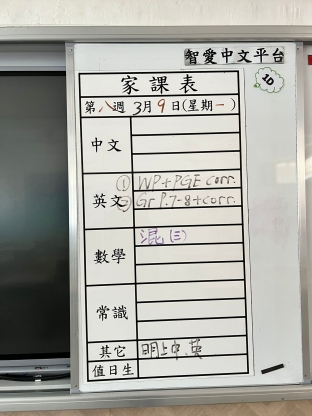 智愛中文平台
10
家課表
第八週 3月9日(星期一)
中文
英文
① WP+PGE corr.
② Gr P.7-8+corr.
數學
混(三)
常識
其它 明上中,英
值日生